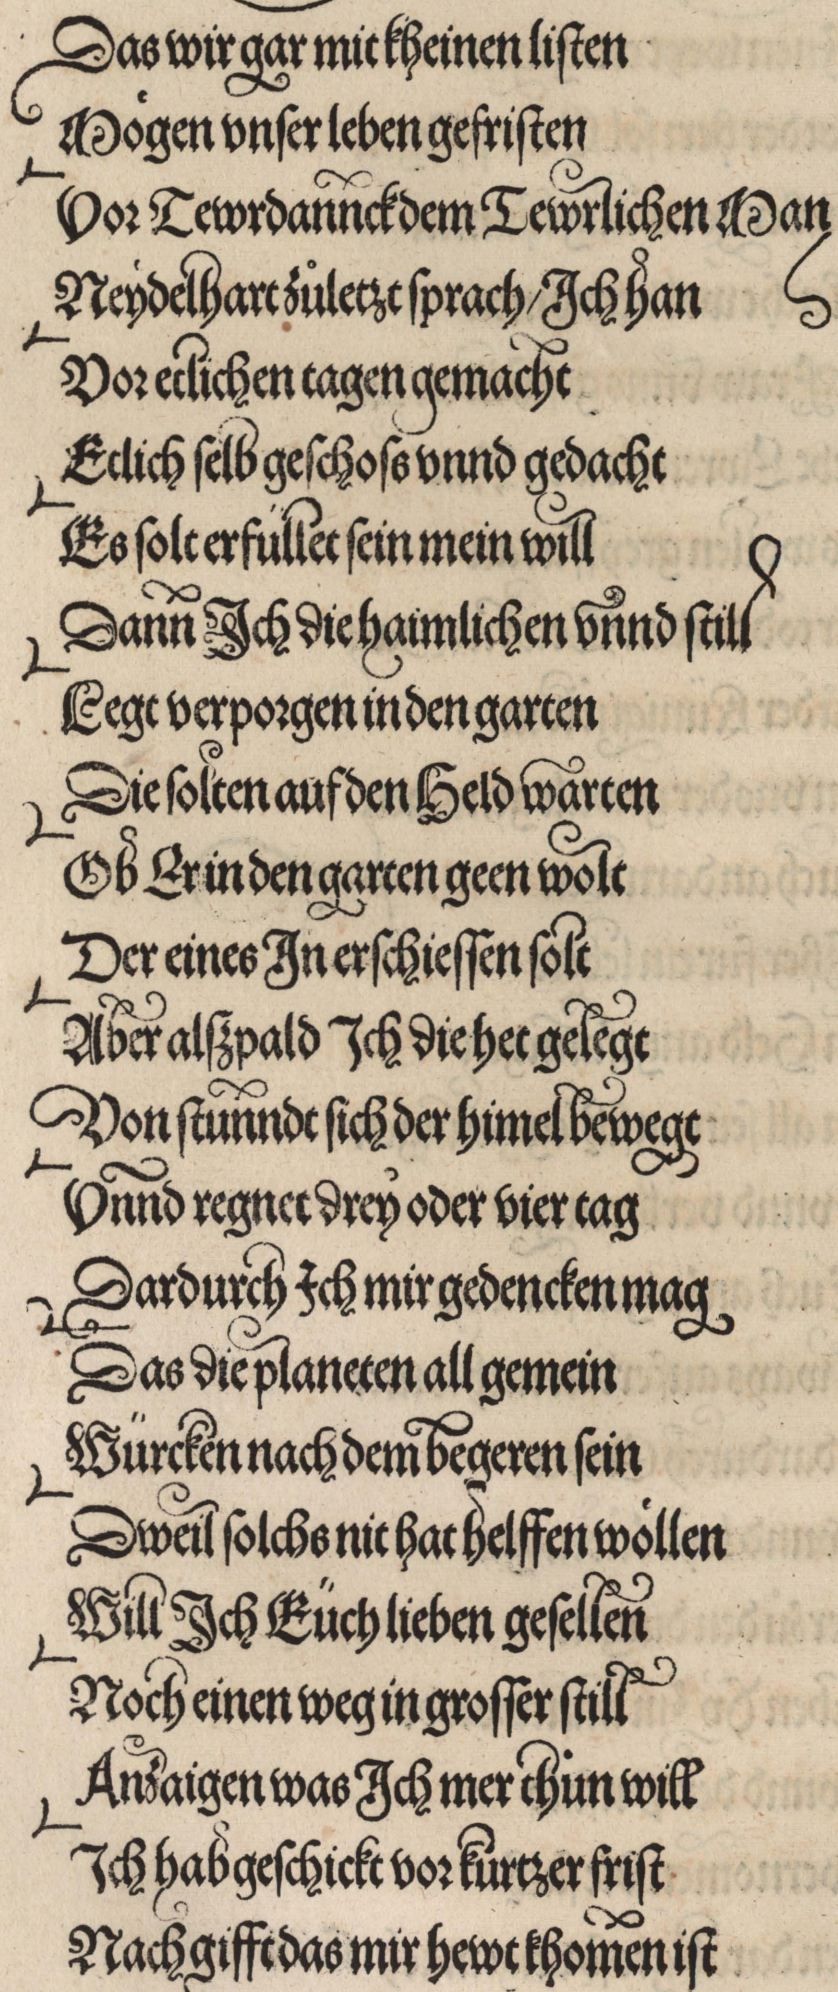 Das wir gar mit kheinen listen
Mögen vnser leben gefristen
Vor Tewrdannck dem Tewrlichen Man
Neydelhart zůletzt sprach / Ich han
Vor etlichen tagen gemacht
Etlich selb geschoss vnnd gedacht
Es solt erfüllet sein mein will
Dann Ich die haimlichen vnnd still
Legt verporgen in den garten
Die solten auf den Held warten
Ob Er in den garten geen wolt
Der eines In erschiessen solt
Aber alszpald Ich die het gelegt
Von stunndt sich der himel bewegt
Vnnd regnet drey oder vier tag
Dardurch Ich mir gedencken mag
Das die planeten all gemein
Würcken nach dem begeren sein
Dweil solchs nit hat helffen wöllen
Will Ich Eüch lieben gesellen
Noch einen weg in grosser still
Anzaigen was Ich mer thun will
Ich hab geschickt vor kurtzer frist
Nach gifft das mir hewt khomen ist